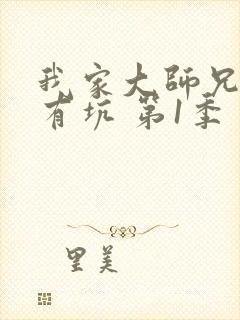 我家大師兄
有坑 第1季
里美